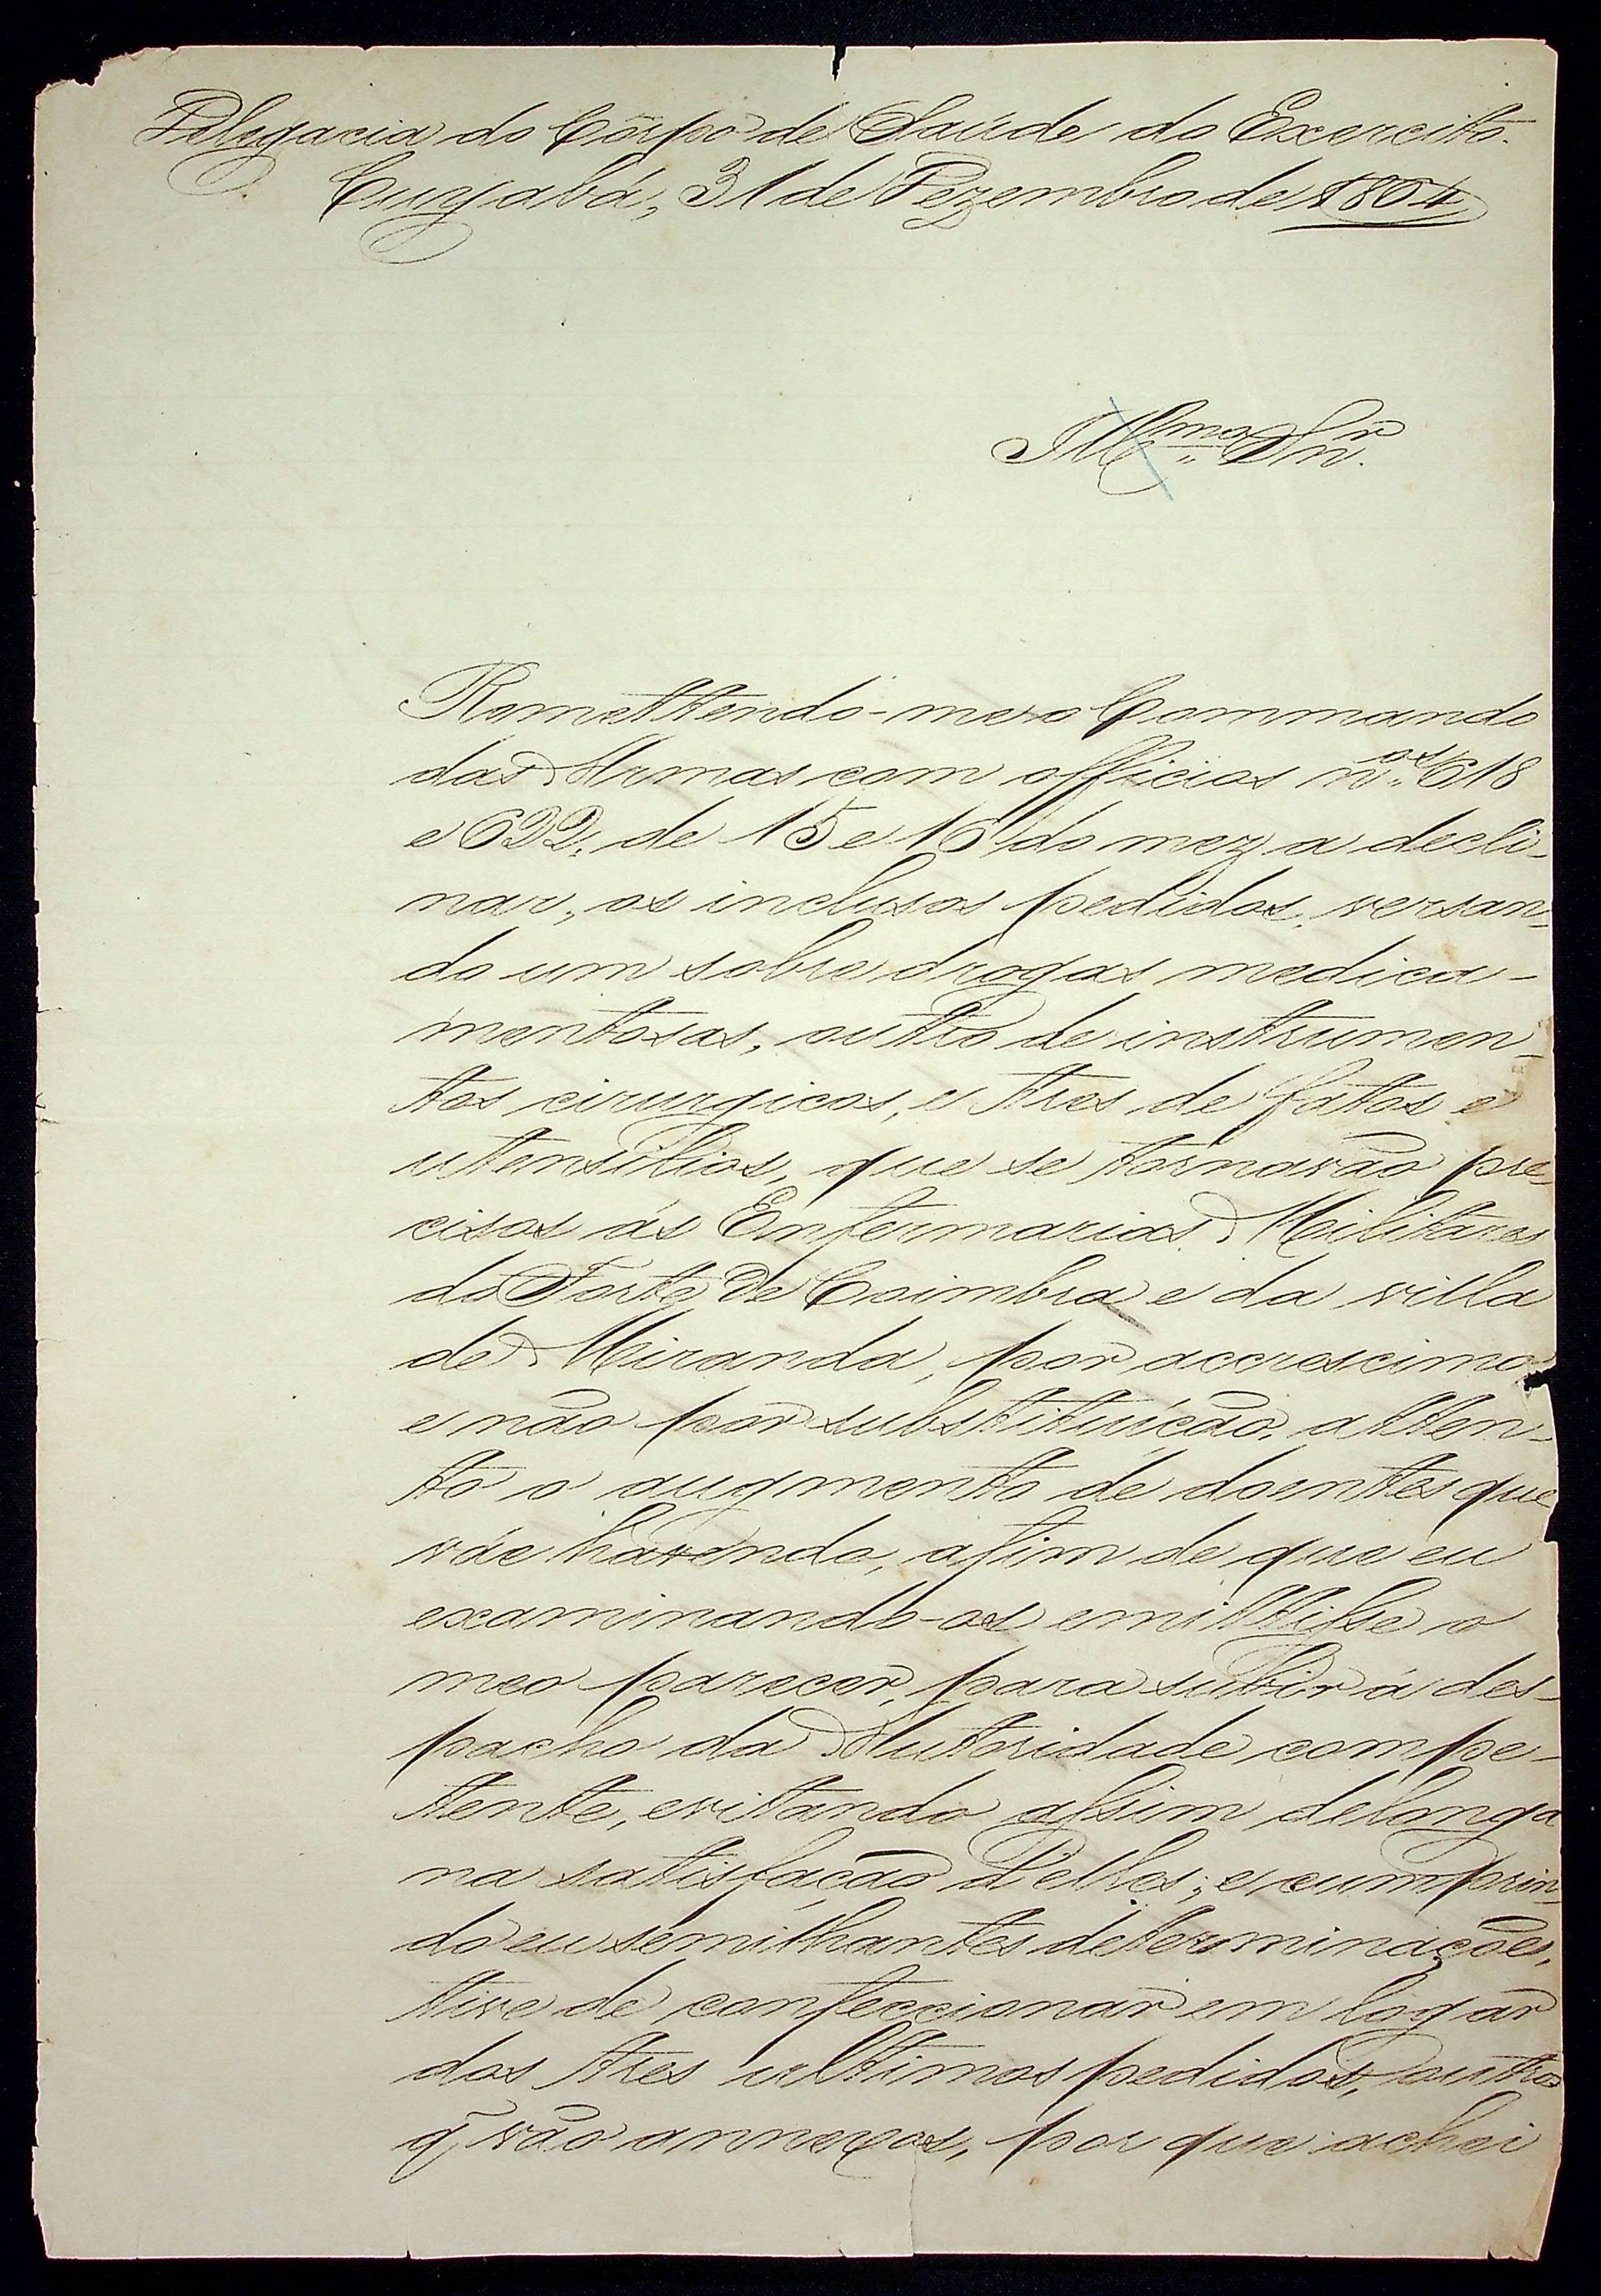 Delegacia do Côrpo de Saúde do Exercito.
Cuyabá, 31 de Dezembro de 1864
Illmo. Snr.
Remettendo-me o Commando
das Armas com officios nos. 618
e 622, de 15 e 16 do mez a decli-
nar, os inclusos pedidos, versan-
do um sobre drogas medica-
mentosas, outro de instrumen-
tos cirurgicos, e tres de fatos e
utensilios, que se tornarão pre-
cisos ás Enfermarias Militares
do Forte de Coimbra e da villa
de Miranda, por accrescimo
e não por substituição, atten-
to o augmento de doentes que
váe havendo, afim de que eu
examinando-os emittisse o
meo parecer, para subir á des-
pacho da Autoridade compe-
tente, evitando assim delonga
na satisfação d'elles; e cumprin-
do eu similhantes determinações,
tive de confeccionar em logar
dos tres ultimos pedidos, outros
q̃ vão annexos, por que achei